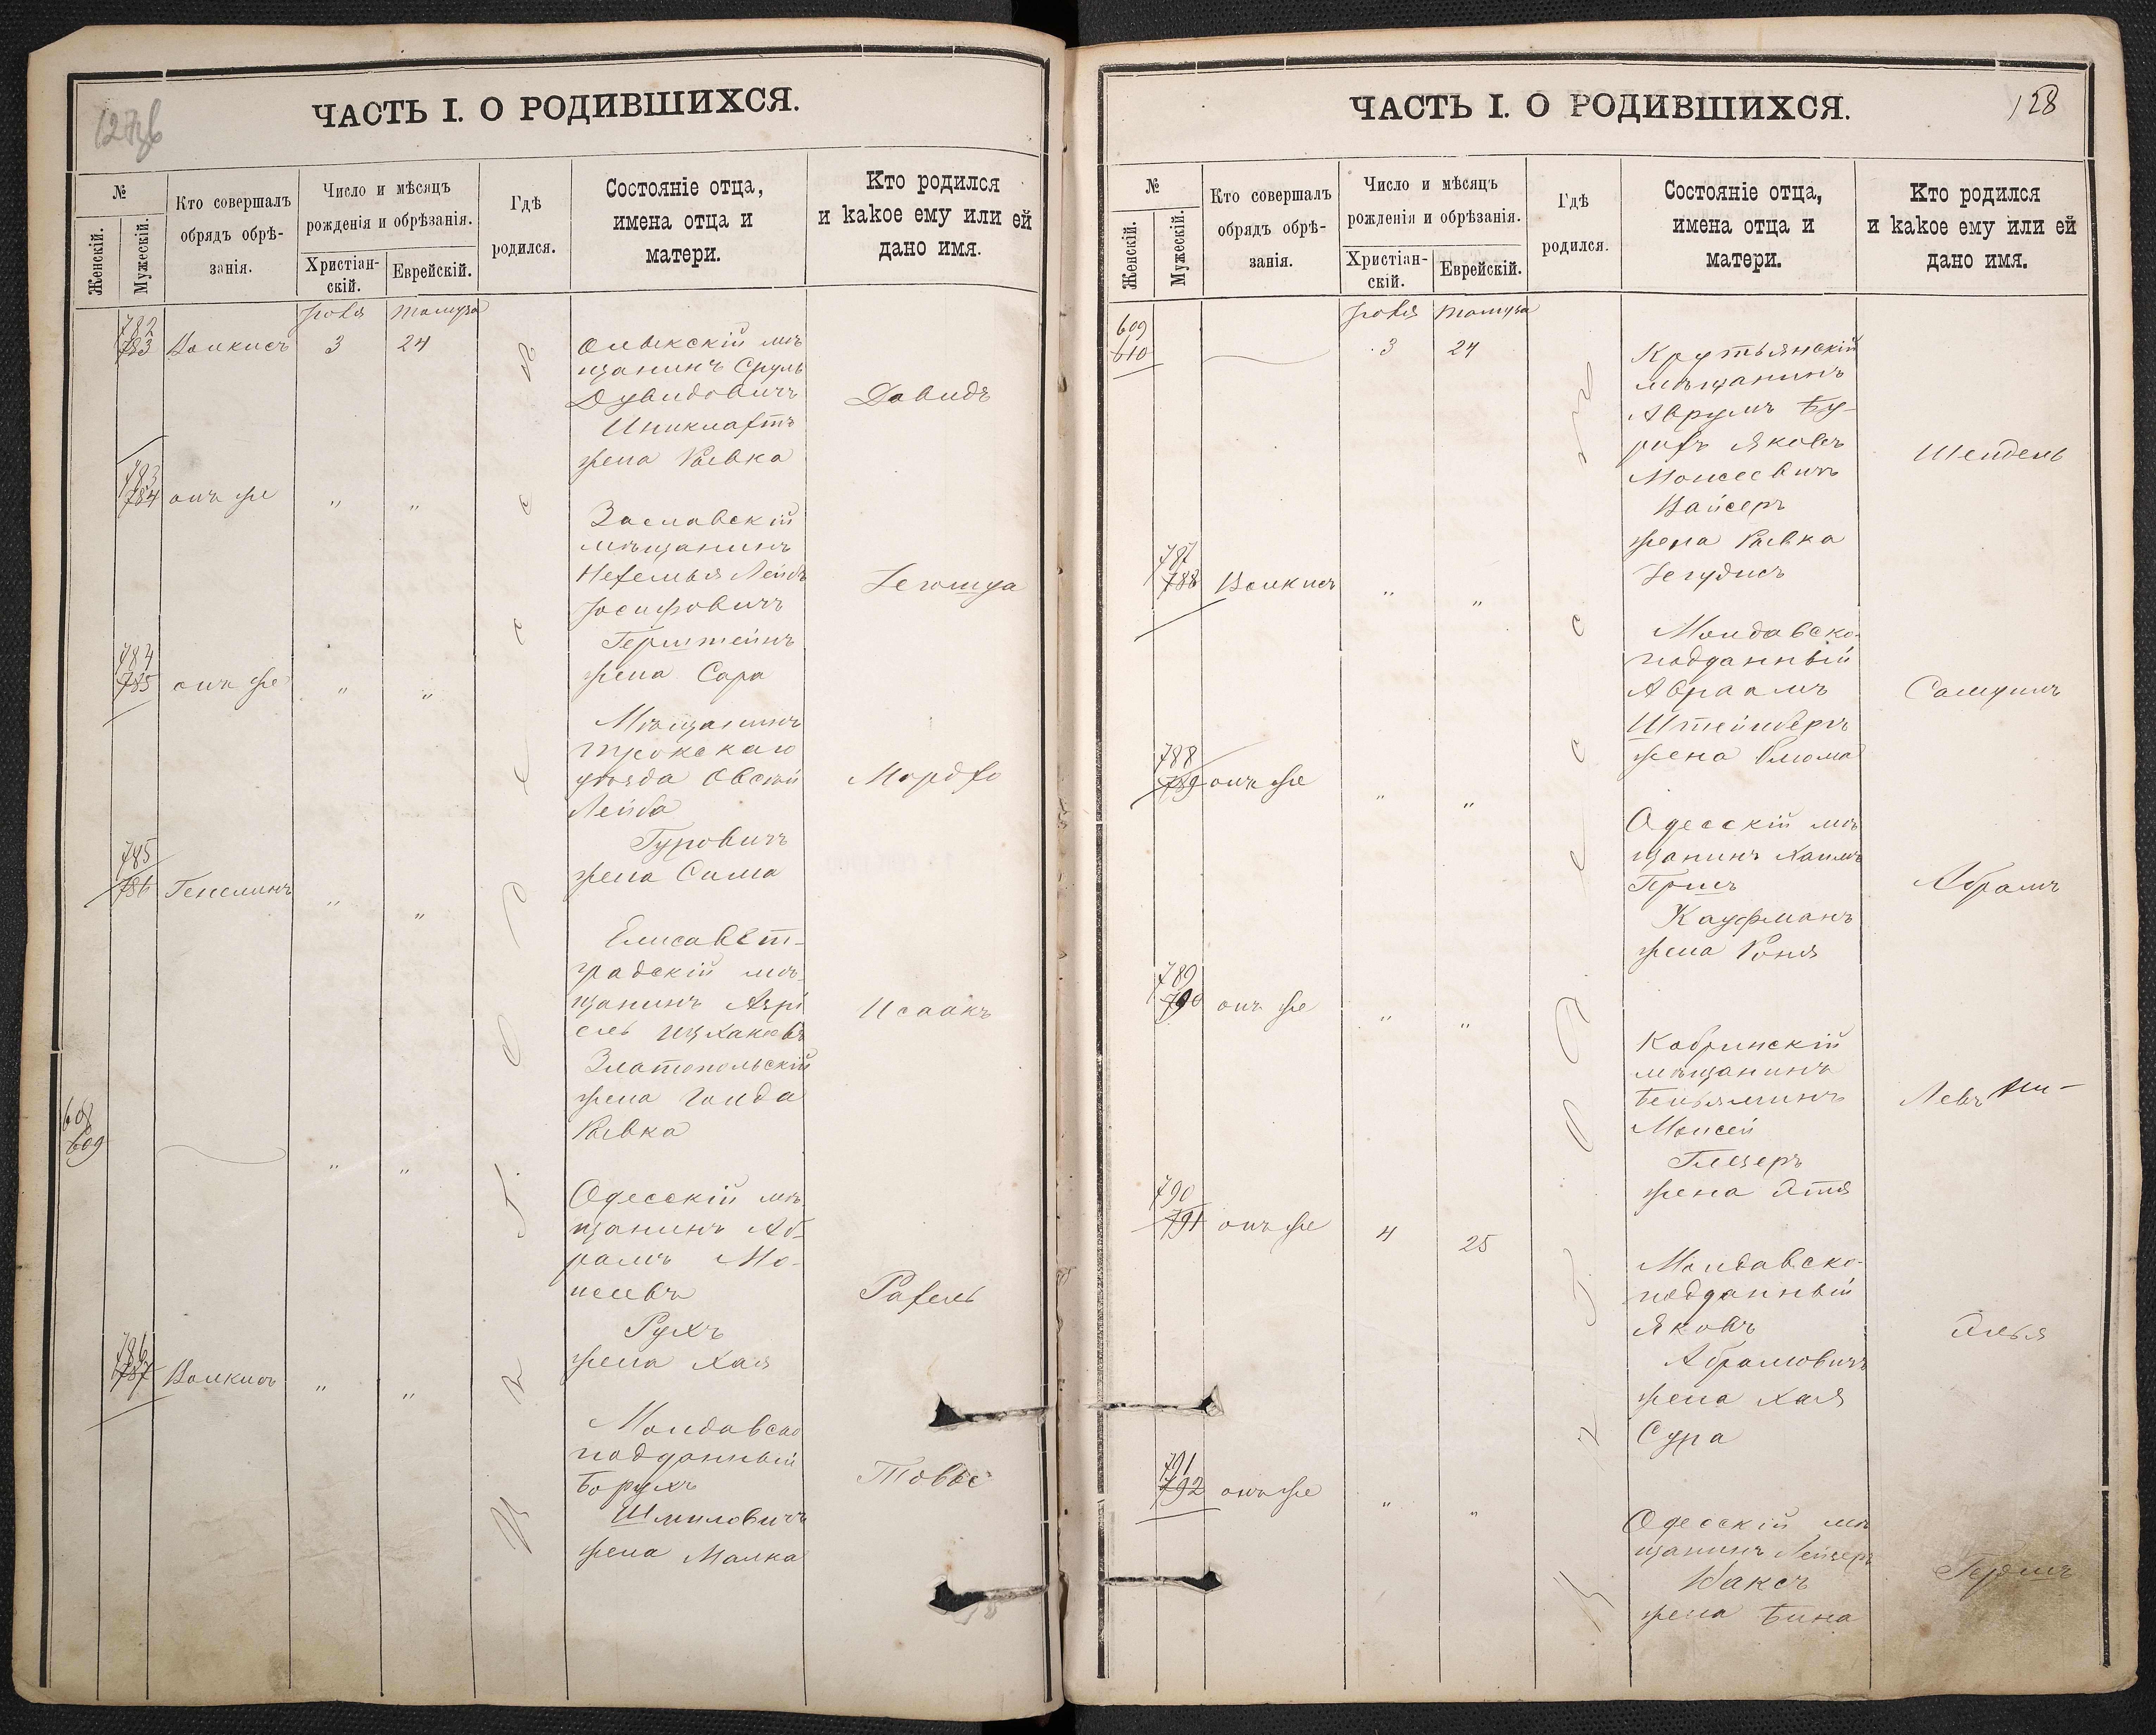 127об
ЧАСТЬ I. О РОДИВШИХСЯ.
№
Женскій.
Мужескій.
Кто совершалъ
обрядъ обрѣ-
занія.
Число и мѣсяцъ
рожденія и обрѣзанія.
Христіан-
скій.
Еврейскій.
Гдѣ
родился.
Состояніе отца,
имена отца и
матери.
Кто родился
и какое ему или ей
дано имя.
Іюля Тамуза
782
783 Валкисъ 3 24
Олыкскій мѣ
щанинъ Сруль
Дувидовичъ
жена Ривка
Давидъ
783
784 онъ же " "
Заславскій
мѣщанинъ
Нехемья Лейбъ
Іосифовичъ
Герштейнъ
жена Сара
Іегошуа
784
785 онъ же " "
Мѣщанинъ
Трокскаго
уѣзда Овсѣй
Лейба
Гуровичъ
жена Сима
Мордхо
785
786 " "
Елисавет-
градскій мѣ
щанинъ Азрі
ель Ицхаковъ
Златопольскій
жена Голда
Ривка
Исаакъ
608
609 " "
Одесскій мѣ
щанинъ Аб-
рамъ Мо-
шевъ
Рухъ
жена Хая
Рахель
786
787 Валкисъ " "
Молдавско
подданный
Борухъ
Шмиловичъ
жена Малка
Товье
въ г. Одессѣ
ЧАСТЬ I. О РОДИВШИХСЯ.
128
№
Женскій.
Мужескій.
Кто совершалъ
обрядъ обрѣ-
занія.
Число и мѣсяцъ
рожденія и обрѣзанія.
Христіан-
скій.
Еврейскій.
Гдѣ
родился.
Состояніе отца,
имена отца и
матери.
Кто родился
и какое ему или ей
дано имя.
Іюля Тамуза
609
610 3 24
Крутьянскій
мѣщанинъ
Аврумъ Бу-
рихъ Яковъ
Моисеевичъ
Вайсеръ
жена Ривка
Іегудисъ
Шейдель
787
788 Валкисъ " "
Молдавско-
подданный
Авраамъ
Штейнберъ
жена Блюма
788
789 онъ же " "
Одесскій мѣ
щанинъ Хаимъ
Гершъ
Кауфманъ
жена Роня
Абрамъ
789
790 онъ же " "
Кобринскій
мѣщанинъ
Беньяминъ
Моисей
Глезеръ
жена Этя
790
791 онъ же 4 25
Молдавско-
подданный
Яковъ
Абрамовичъ
жена Хая
Сура
Элья
791
792 онъ же " "
Одесскій мѣ
щанинъ Лейзеръ
Ваксъ
жена Бина
Гершъ